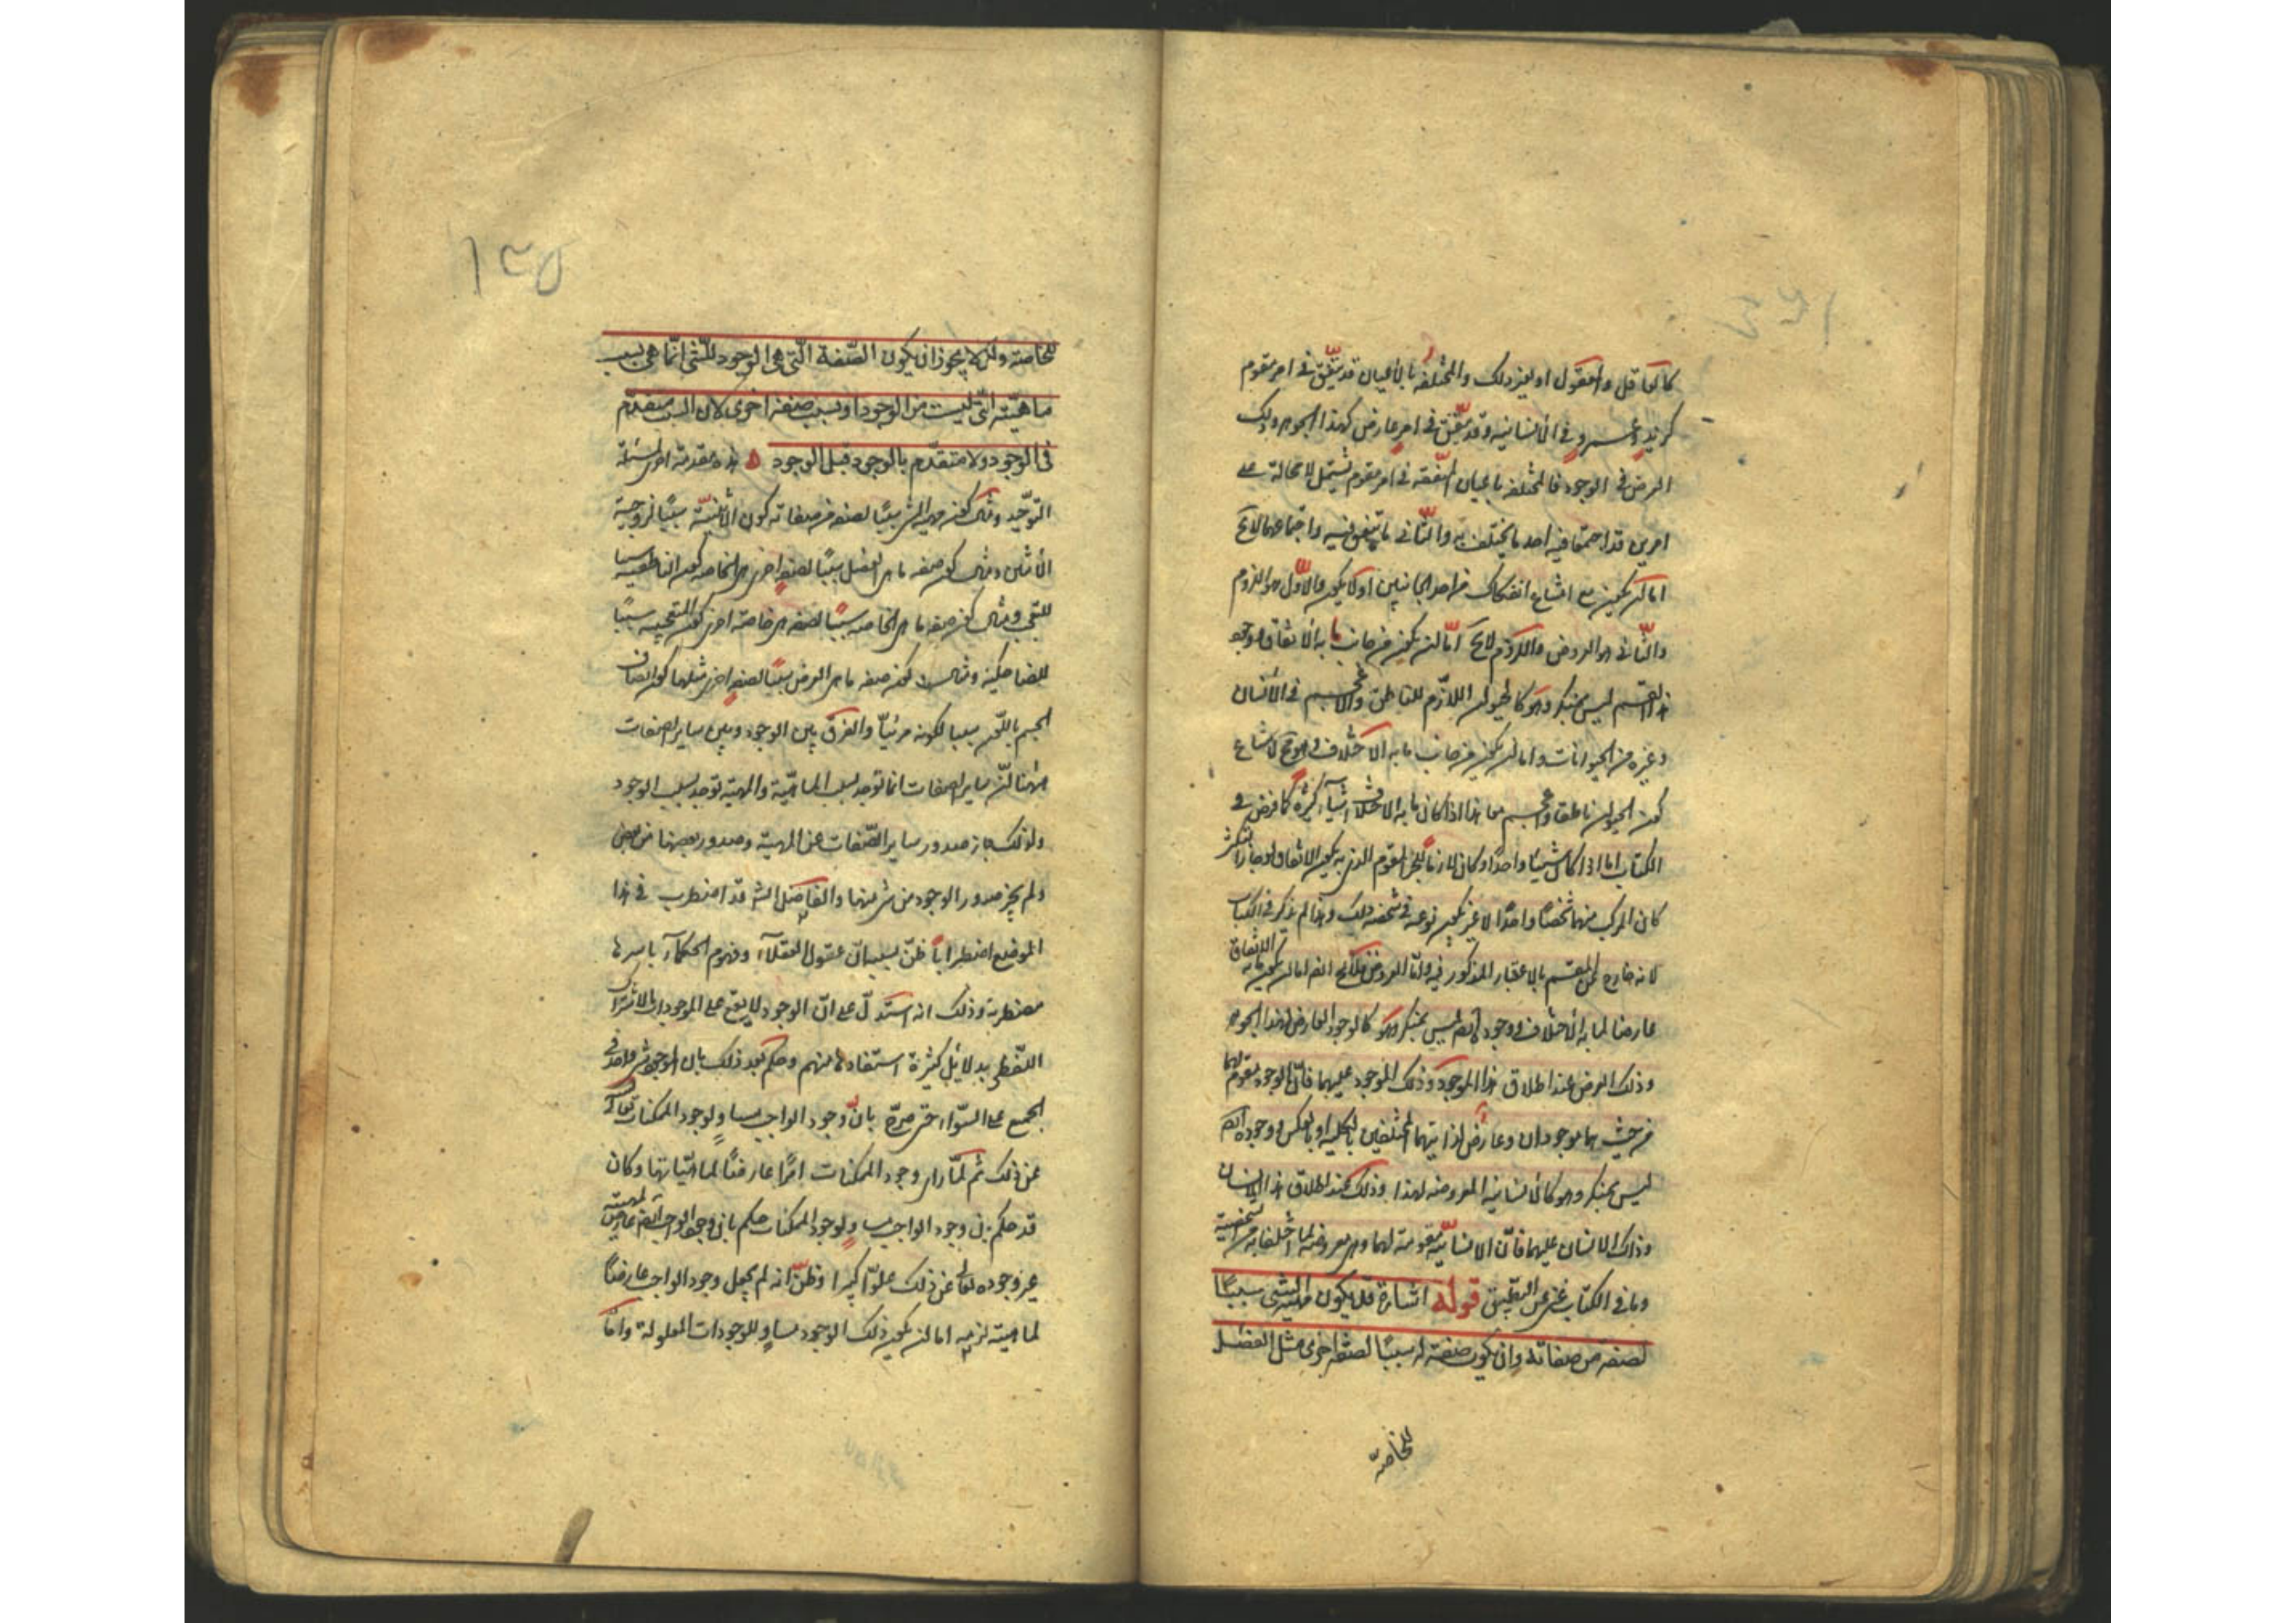 كالعاقل والمعقول او لغير ذلك والمختلفة بالاعيان قد تتفق فى امر مقوم
كزيد وعمرو فى الانسانية وقد تتفق فى امر عارض كهذا الجوهر وذلك
العرض فى الوجود فالمختلفة باعيان المتفقة فى امر مقوم تشتمل لا محالة على
امرين قد اجتمعا فيه احدهما يختلف به والثانى ما يتفق فيه واجتماعهما لا يخ
اما ان يكون مع امتناع انفكاك من احد الجانبين او لا يكون فالاول هو اللزوم
والثانى هو العروض واللزوم لا يخ اما ان يكون من جانب ما به الاتفاق وهو
هذا القسم ليس بمنكر وهو كالحيوان اللازم للناطق والاعجم فى الانسان
وغيره من الحيوانات واما ان يكون من جانب ما به الاختلاف وهو مح لامتناع
كون الحيوان ناطقا واعجم معا هذا اذا كان ما به الاختلاف اشياء كثيرة كما فرض فى
الكتاب اما اذا كان شيئا واحدا وكان لازما للجزء المقوم الذى به يكون الاتفاق
كان المركب منهما شخصا واحدا لا غير يكون نوعه فى شخصه ذلك وهذا لم يذكر فى الكتاب
لانه خارج عن المقسم بالاعتبار المذكور فيه واما العروض فلا يخ ايضا اما ان يكون ما به الاتفاق
عارضا لما به الاختلاف ووجوده ايضا ليس بمنكر وهو كالوجود العارض لهذا الجوهر
وذلك العرض عند اطلاق هذا الموجود وذلك الموجود عليهما فان الوجود مقوم لهما
من حيث هما موجودان وعارض لذاتيهما المختلفين بالكلية او بالعكس ووجوده ايضا
ليس بمنكر وهو كالانسانية المعروضة لهذا وذلك عند اطلاق هذا الانسان
وذاك الانسان عليهما فان الانسانية مقومة لهما وهى معروضة لما اختلفا به من الشخصية
وما فى الكتاب غنى عن التطبيق قوله اشارة قد يكون مهية الشئ سببا
لصفة من صفاته وان يكون صفة له سببا لصفة اخرى مثل الفصل
للخاصة
١٣٥
للخاصة ولكن لا يجوز ان يكون الصفة التى هى الوجود للشئ انما هى بسبب
ماهيته التى ليست من الوجود او بسبب صفة اخرى لان السبب متقدم
فى الوجود ولا متقدم بالوجود قبل الوجود هذه مقدمة اخرى لمسئلة
التوحيد ومثال كون مهية الشئ سببا لصفة من صفاته كون الاثنينية سببا لزوجية
الاثنين ومثال كون صفة ما هى الفصل سببا لصفة اخرى هى الخاصة كون الناطقية سببا
للتعجب ومثال كون صفة ما هى الخاصة سببا لصفة هى خاصة اخرى كون المتعجبية سببا
للضاحكية ومثال كون صفة ما هى العرض سببا لصفة اخرى مثلها كون اتصاف
الجسم باللون سببا لكونه مرئيا والفرق بين الوجود وبين ساير الصفات
هيهنا ان ساير الصفات انما توجد بسبب الماهية والمهية توجد بسبب الوجود
ولذلك جاز صدور ساير الصفات عن المهية وصدور بعضها من بعض
ولم يجز صدور الوجود من شئ منها والفاضل الشه قد اضطرب فى هذا
الموضع اضطرابا ظن بسببه ان عقول العقلاء وفهوم الحكماء باسرها
مضطربة وذلك انه استدل على ان الوجود لا يقع على الموجودات بالاشتراك
اللفظى بدلايل كثيرة استفادها منهم وحكم بعد ذلك بان الوجود شئ واحد فى
الجميع على السواء حتى صرح بان وجود الواجب مساو لوجود الممكنات تعالى
عن ذلك ثم لما راى وجود الممكنات امرا عارضا لماهياتها وكان
قد حكم بان وجود الواجب مساو لوجود الممكنات حكم بان وجود الواجب ايضا عارض لمهيته
غير وجوده تعالى عن ذلك علوا كبيرا وظن انه لم يجعل وجود الواجب عارضا
لماهيته لزمه اما ان يكون ذلك الوجود مساويا للوجودات المعلولة واما